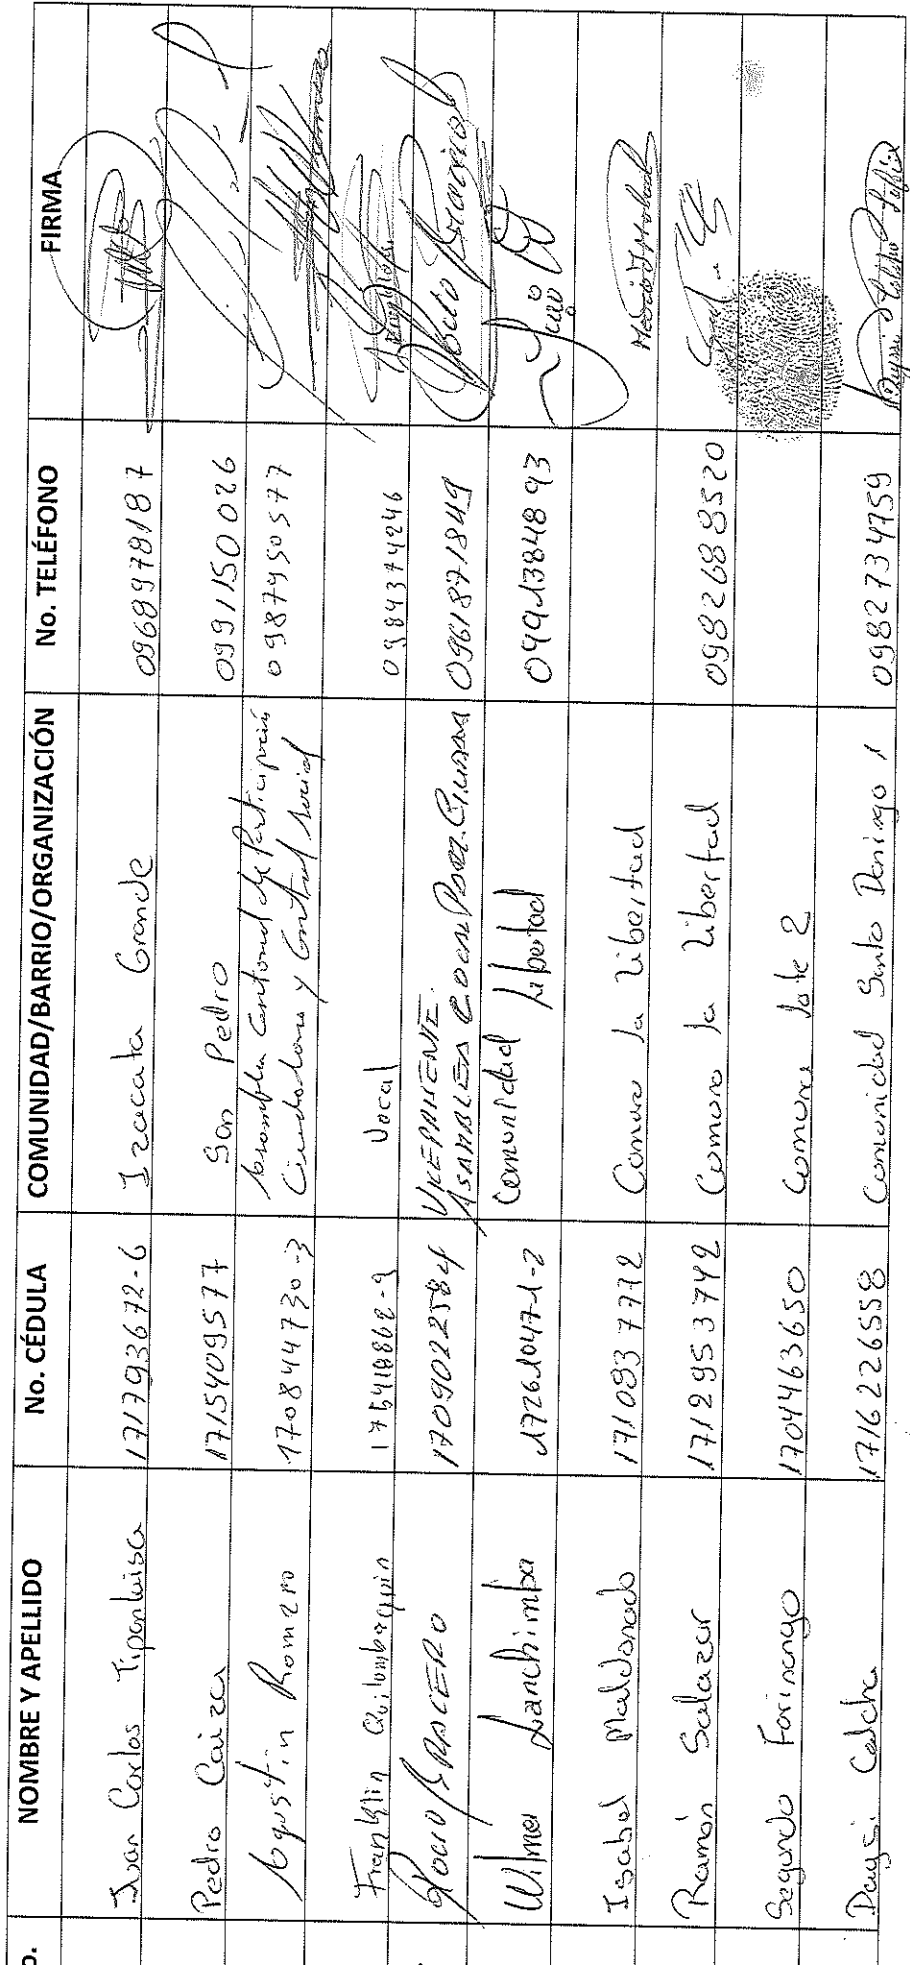 o. NOMBRE Y APELLIDO No. CÉDULA COMUNIDAD/BARRIO/ORGANIZACIÓN No. TELÉFONO FIRMA
Juan Carlos Tipanluisa 171793672-6 Izacata Grande 0968978187
Pedro Caiza 1715409577 San Pedro 0991150026
Agustin Romero 170844730-3 Asamblea Cantonal de Participación 0987450577
Ciudadana y Control Social
Franklin Quilumbaquin 17541886 2-9 Vocal 0984374246
Rocio BRACERO 1709022584 VICEPRESIDENTE 0961871849
ASAMBLEA
Wilmer Lanchimba 172610471-2 Comunidad Libertad 0991384893
Isabel Maldonado 1710937772 Comuna la Libertad
Ramón Salazar 1712953742 Comuna la Libertad 0982688520
Segundo Farinango 1704463650 Comuna lote 2
Daysi Colcha 1716226558 Comunidad Santo Domingo 1 0982734759